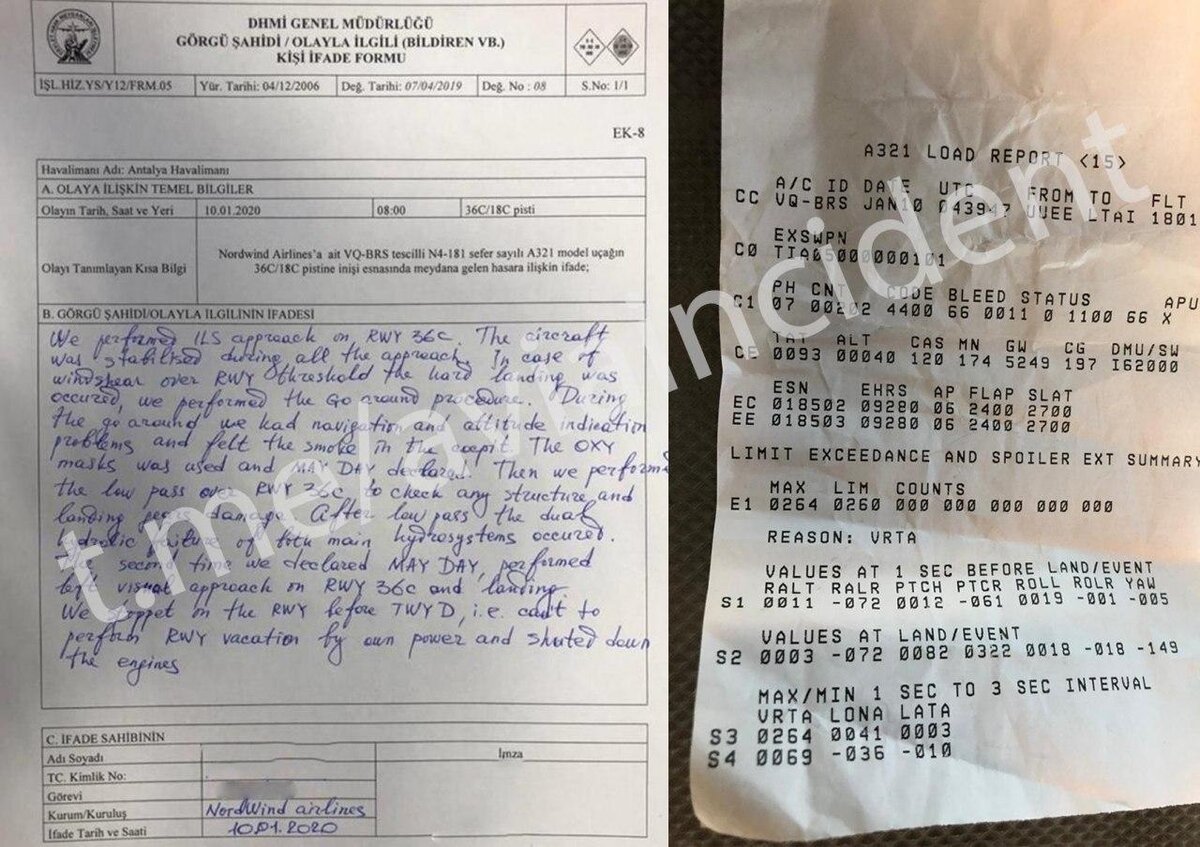 DHMİ GENEL MÜDÜRLÜĞÜ
GÖRGÜ ŞAHİDİ / OLAYLA İLGİLİ (BİLDİREN VB.)
KİŞİ İFADE FORMU
İŞL.HİZ.YS/Y12/FRM.05 Yür. Tarihi: 04/12/2006 Değ. Tarihi: 07/04/2019 Değ. No : 08 S.No: 1/1
EK-8
Havalimanı Adı: Antalya Havalimanı
A. OLAYA İLİŞKİN TEMEL BİLGİLER
Olayın Tarih, Saat ve Yeri 10.01.2020 08:00 36C/18C pisti
Olayı Tanımlayan Kısa Bilgi
Nordwind Airlines'a ait VQ-BRS tescilli N4-181 sefer sayılı A321 model uçağın
36C/18C pistine inişi esnasında meydana gelen hasara ilişkin ifade;
B. GÖRGÜ ŞAHİDİ/OLAYLA İLGİLİNİN İFADESİ
We performed ILS approach on RWY 36C. The aircraft
was stabilised during all the approach. In case of
windshear over RWY threshold the hard landing was
occured, we performed the Go around procedure. During
the go around we had navigation and altitude indication
problems and felt the smoke in the cocpit. The OXY
masks was used and MAY DAY declared. Then we perform
the low pass over RWY 36C to check any structure and
landing gears damage. After low pass the dual
hydraulic failure of both main hydrosystems occured.
The second time we declared MAY DAY, performed
left visual approach on RWY 36C and landing.
We stoppet on the RWY before TWY D, i.e. can't to
perform RWY vacation by own power and shuted down
the engines
C. İFADE SAHİBİNİN
Adı Soyadı İmza
TC. Kimlik No:
Görevi
Kurum/Kuruluş NordWind airlines
İfade Tarih ve Saati 10.01.2020
A321 LOAD REPORT <15>
A/C ID DATE UTC FROM TO FLT
CC VQ-BRS JAN10 043947 UUEE LTAI 1801
EXSWPN
C0 TIA05000000101
PH CNT CODE BLEED STATUS APU
C1 07 00202 4400 66 0011 0 1100 66 X
TAT ALT CAS MN GW CG DMU/SW
CE 0093 00040 120 174 5249 197 I62000
ESN EHRS AP FLAP SLAT
EC 018502 09280 06 2400 2700
EE 018503 09280 06 2400 2700
LIMIT EXCEEDANCE AND SPOILER EXT SUMMARY
MAX LIM COUNTS
E1 0264 0260 000 000 000 000 000
REASON: VRTA
VALUES AT 1 SEC BEFORE LAND/EVENT
RALT RALR PTCH PTCR ROLL ROLR YAW
S1 0011 -072 0012 -061 0019 -001 -005
VALUES AT LAND/EVENT
S2 0003 -072 0082 0322 0018 -018 -149
MAX/MIN 1 SEC TO 3 SEC INTERVAL
VRTA LONA LATA
S3 0264 0041 0003
S4 0069 -036 -010